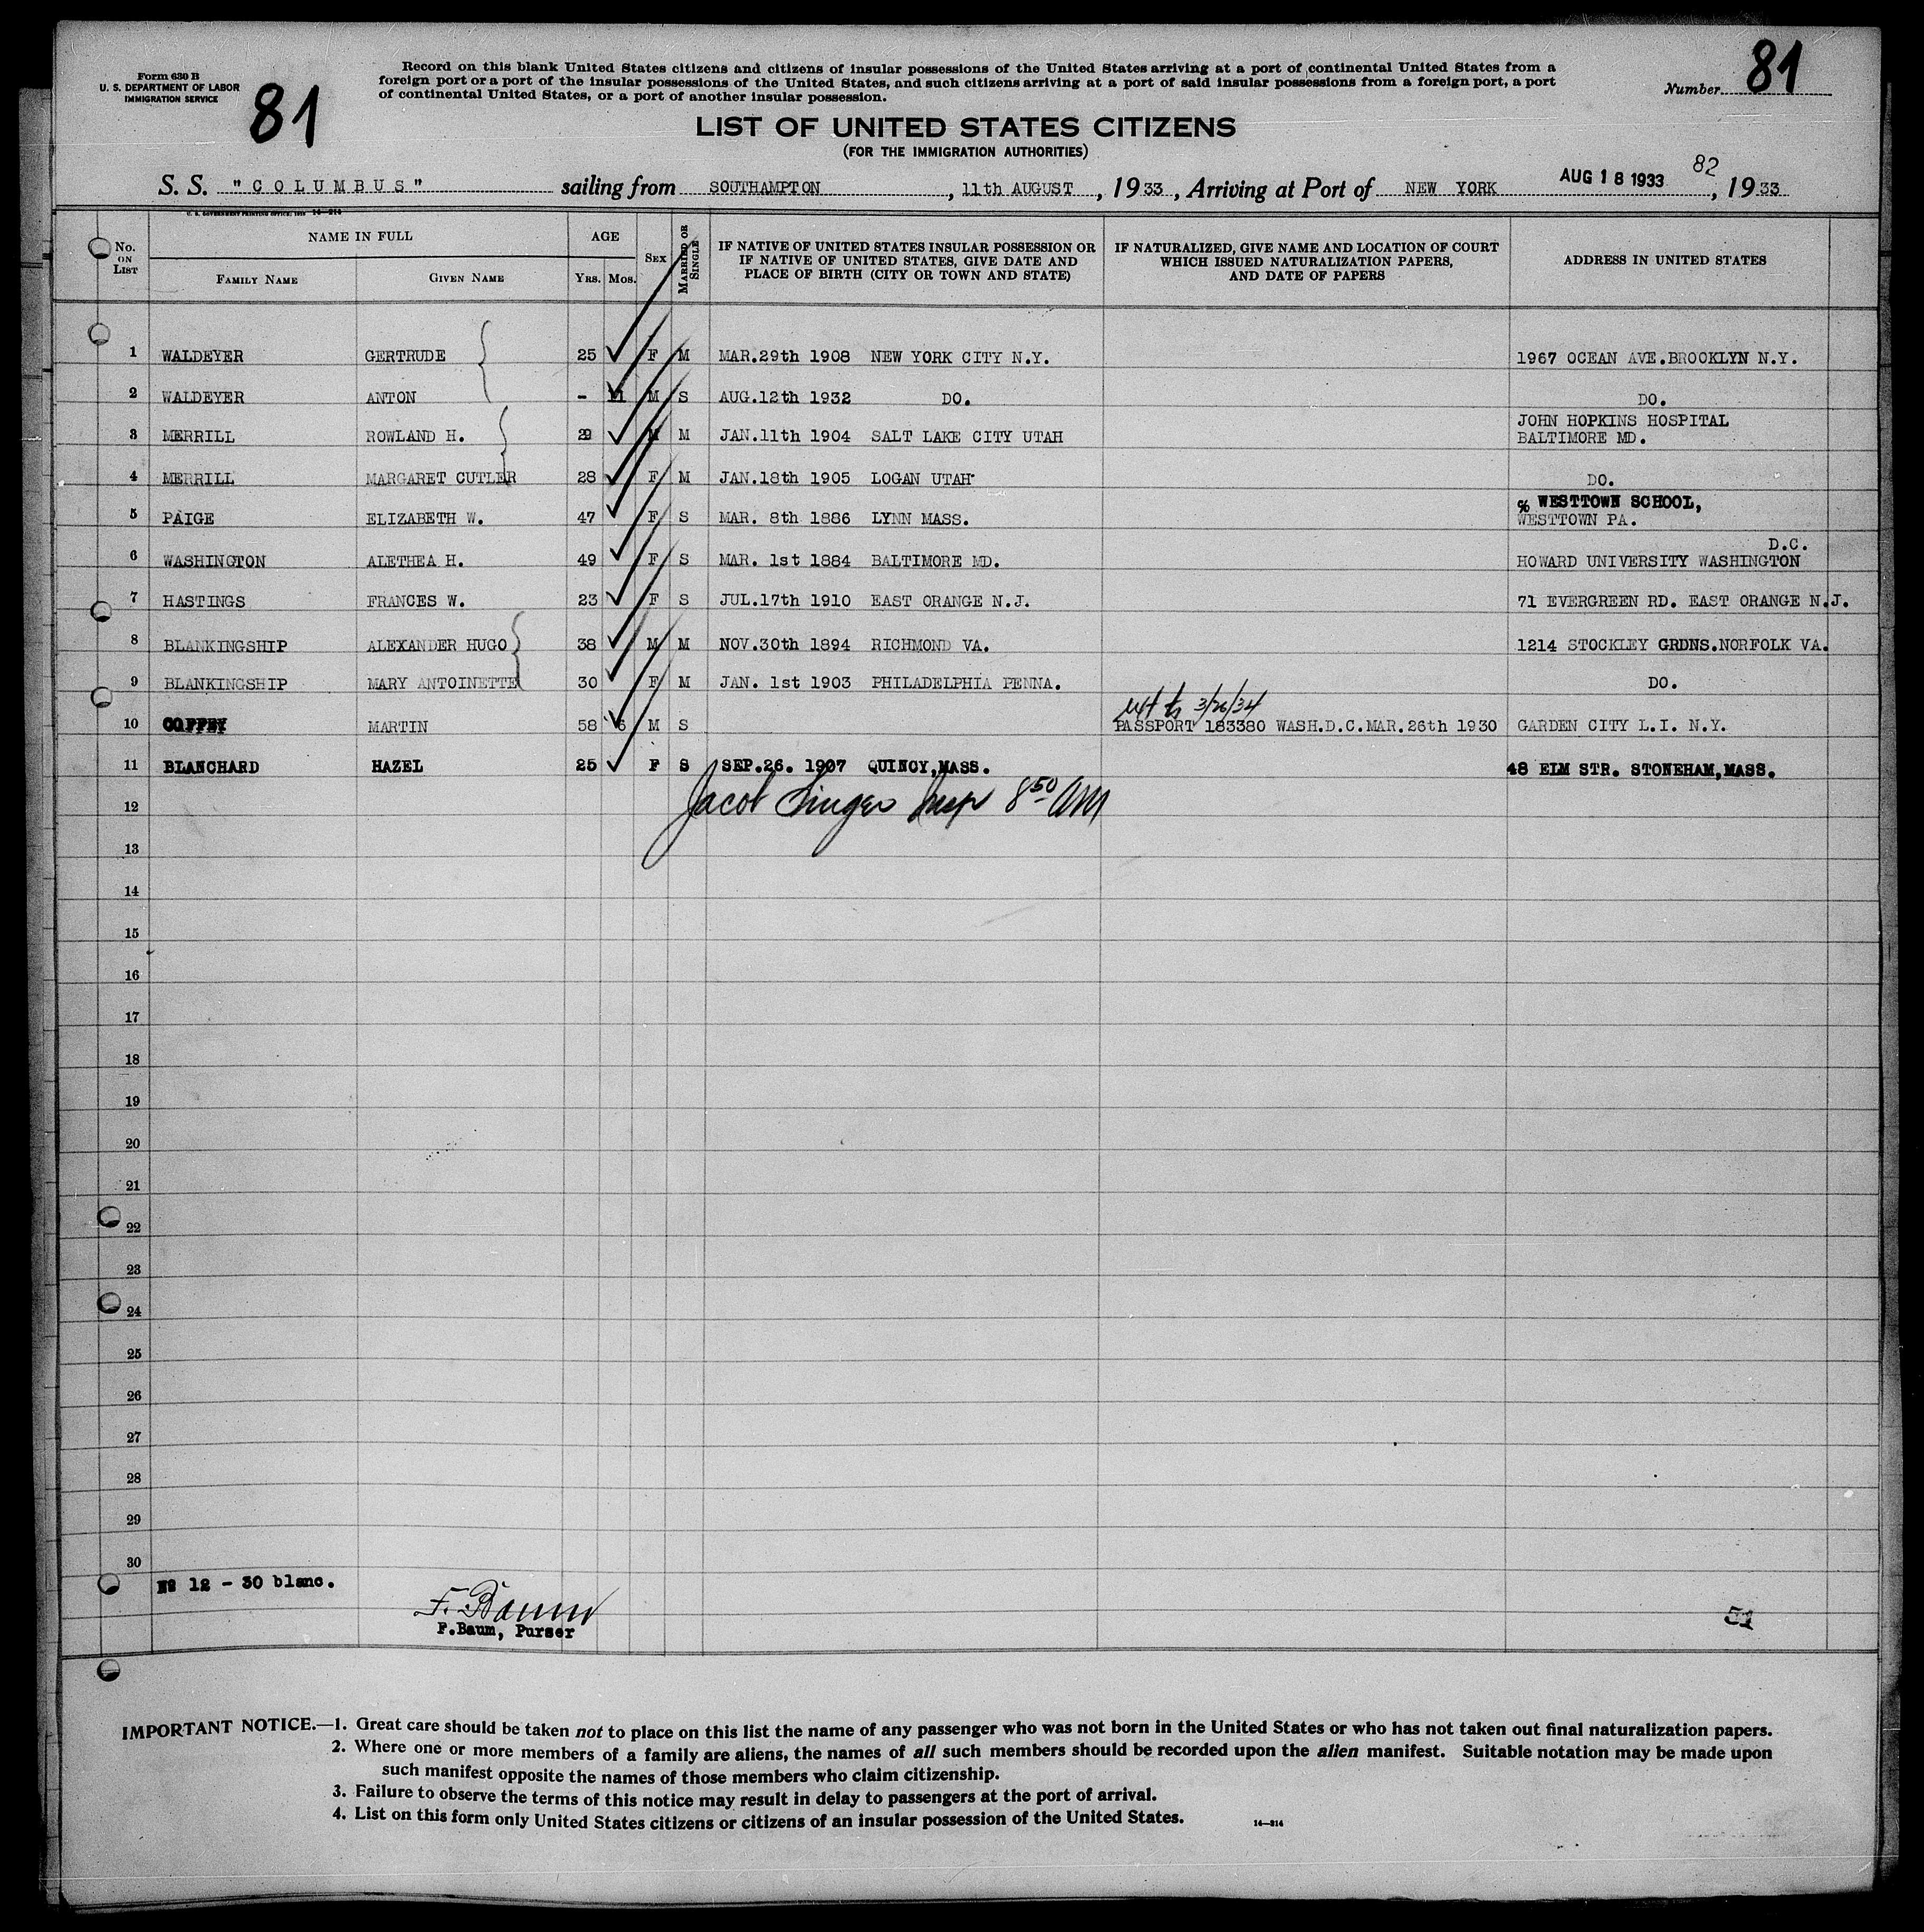 Form 630 B
U. S. DEPARTMENT OF LABOR
IMMIGRATION SERVICE
81
Record on this blank United States citizens and citizens of insular possessions of the United States arriving at a port of continental United States from a
foreign port or a port of the insular possessions of the United States, and such citizens arriving at a port of said insular possessions from a foreign port, a port
of continental United States, or a port of another insular possession.
Number 81
LIST OF UNITED STATES CITIZENS
(FOR THE IMMIGRATION AUTHORITIES)
82
S. S. "COLUMBUS" sailing from SOUTHAMPTON, 11th AUGUST, 1933, Arriving at Port of NEW YORK AUG 18 1933, 1933
U. S. GOVERNMENT PRINTING OFFICE 14—214
No. ON LIST
NAME IN FULL
FAMILY NAME
GIVEN NAME
AGE
YRS. MOS.
SEX
MARRIED OR SINGLE
IF NATIVE OF UNITED STATES INSULAR POSSESSION OR
IF NATIVE OF UNITED STATES, GIVE DATE AND
PLACE OF BIRTH (CITY OR TOWN AND STATE)
IF NATURALIZED, GIVE NAME AND LOCATION OF COURT
WHICH ISSUED NATURALIZATION PAPERS,
AND DATE OF PAPERS
ADDRESS IN UNITED STATES
1 WALDEYER GERTRUDE 25 F M MAR.29th 1908 NEW YORK CITY N.Y. 1967 OCEAN AVE.BROOKLYN N.Y.
2 WALDEYER ANTON - 11 M S AUG.12th 1932 DO. DO.
3 MERRILL ROWLAND H. 29 M M JAN.11th 1904 SALT LAKE CITY UTAH JOHN HOPKINS HOSPITAL
BALTIMORE MD.
4 MERRILL MARGARET CUTLER 28 F M JAN.18th 1905 LOGAN UTAH DO.
5 PAIGE ELIZABETH W. 47 F S MAR. 8th 1886 LYNN MASS. % WESTTOWN SCHOOL,
WESTTOWN PA.
6 WASHINGTON ALETHEA H. 49 F S MAR. 1st 1884 BALTIMORE MD. HOWARD UNIVERSITY WASHINGTON D.C.
7 HASTINGS FRANCES W. 23 F S JUL.17th 1910 EAST ORANGE N.J. 71 EVERGREEN RD. EAST ORANGE N.J.
8 BLANKINGSHIP ALEXANDER HUGO 38 M M NOV.30th 1894 RICHMOND VA. 1214 STOCKLEY GRDNS.NORFOLK VA.
9 BLANKINGSHIP MARY ANTOINETTE 30 F M JAN. 1st 1903 PHILADELPHIA PENNA. DO.
3/26/34
10 COFFEY MARTIN 58 6 M S PASSPORT 183380 WASH.D.C.MAR.26th 1930 GARDEN CITY L.I. N.Y.
11 BLANCHARD HAZEL 25 F S SEP.26. 1907 QUINCY,MASS. 48 ELM STR. STONEHAM,MASS.
12 Jacob Singer Insp 8 50 AM
13
14
15
16
17
18
19
20
21
22
23
24
25
26
27
28
29
30
No 12 - 30 blanc.
F. Baum
F.Baum, Purser
51
IMPORTANT NOTICE.—1. Great care should be taken not to place on this list the name of any passenger who was not born in the United States or who has not taken out final naturalization papers.
2. Where one or more members of a family are aliens, the names of all such members should be recorded upon the alien manifest. Suitable notation may be made upon
such manifest opposite the names of those members who claim citizenship.
3. Failure to observe the terms of this notice may result in delay to passengers at the port of arrival.
4. List on this form only United States citizens or citizens of an insular possession of the United States.
14—214